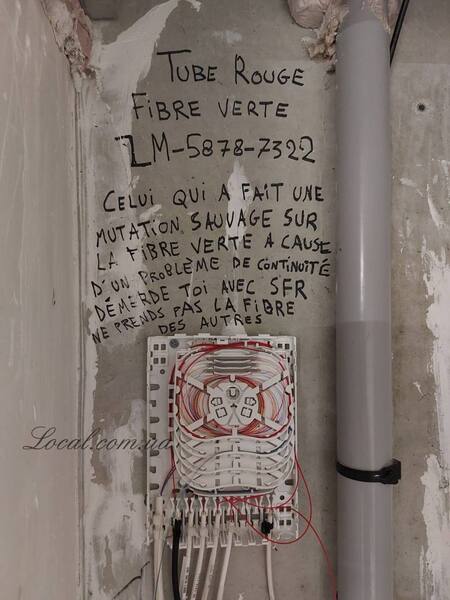 TUBE ROUGE
FIBRE VERTE
LM-5878-7322
CELUI QUI A FAIT UNE
MUTATION SAUVAGE SUR
LA FIBRE VERTE A CAUSE
D'UN PROBLÈME DE CONTINUITÉ
DÉMERDE TOI AVEC SFR
NE PRENDS PAS LA FIBRE
DES AUTRES
Local.com.ua